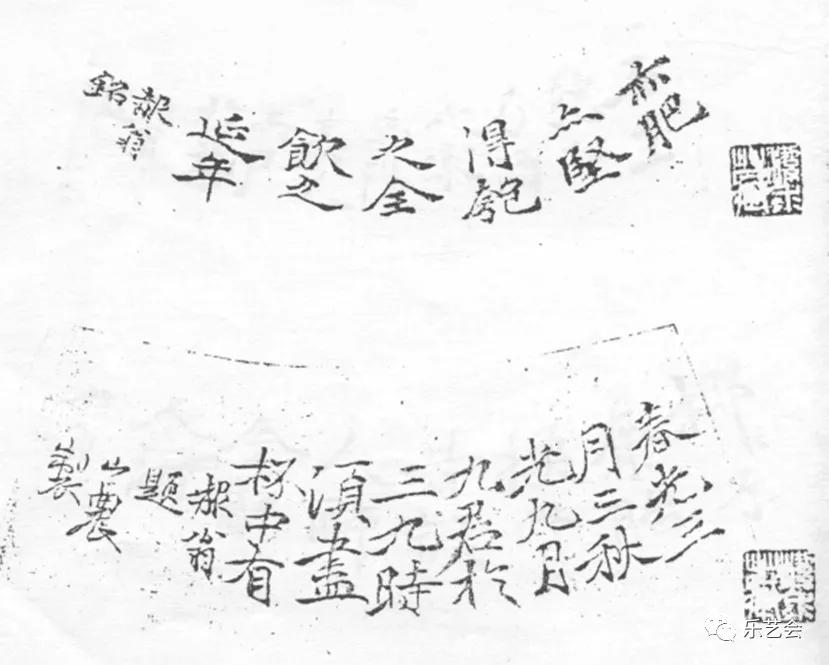 亦肥
亦堅
得匏
之全
飲之
延年
赧翁
銘
春光三
月三秋
光九月
九君於
三九時
須盡
杯中有
赧翁
題
山農
製
乐艺会